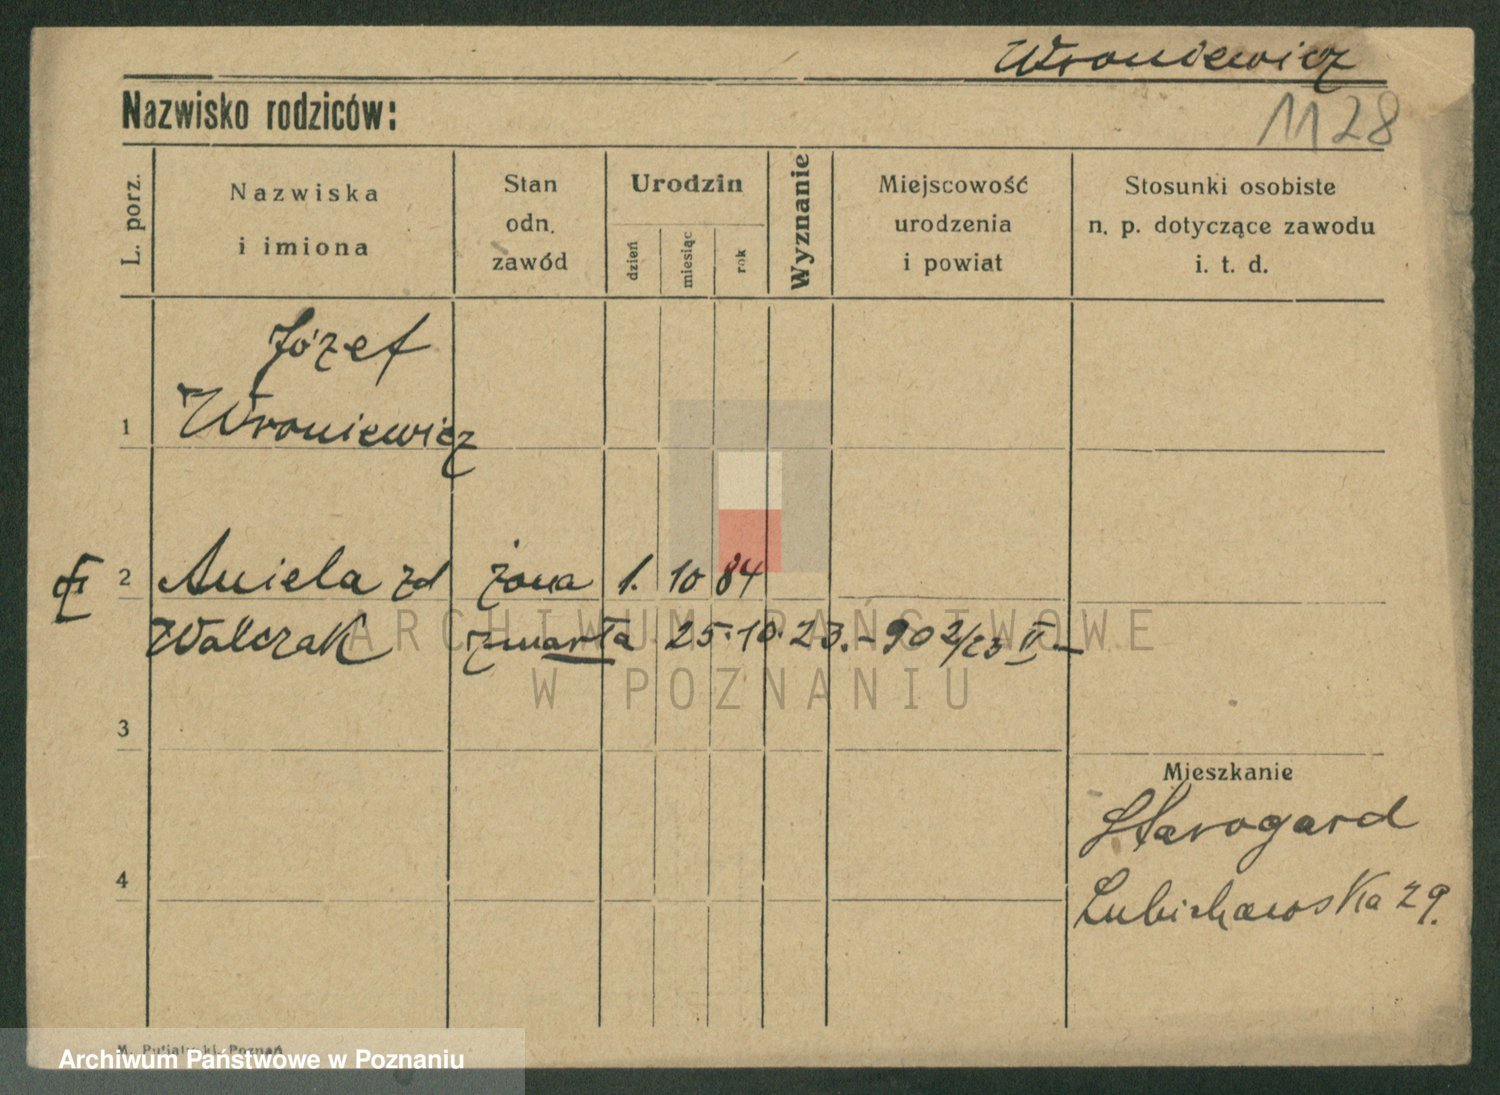 Wroniewicz
Nazwisko rodziców:
1128
L. porz.
Nazwiska
i imiona
Stan
odn.
zawód
Urodzin
dzień
miesiąc
rok
Wyznanie
Miejscowość
urodzenia
i powiat
Stosunki osobiste
n. p. dotyczące zawodu
i. t. d.
Józef
1 Wroniewicz
2 Aniela zd żona 1. 10 84
Walczak zmarła 25.10.23. - 902/23 II -
ARCHIWUM PAŃSTWOWE
W POZNANIU
3
Mieszkanie
Starogard
4
Lubichowska 29.
M. Putiatycki, Poznań
Archiwum Państwowe w Poznaniu